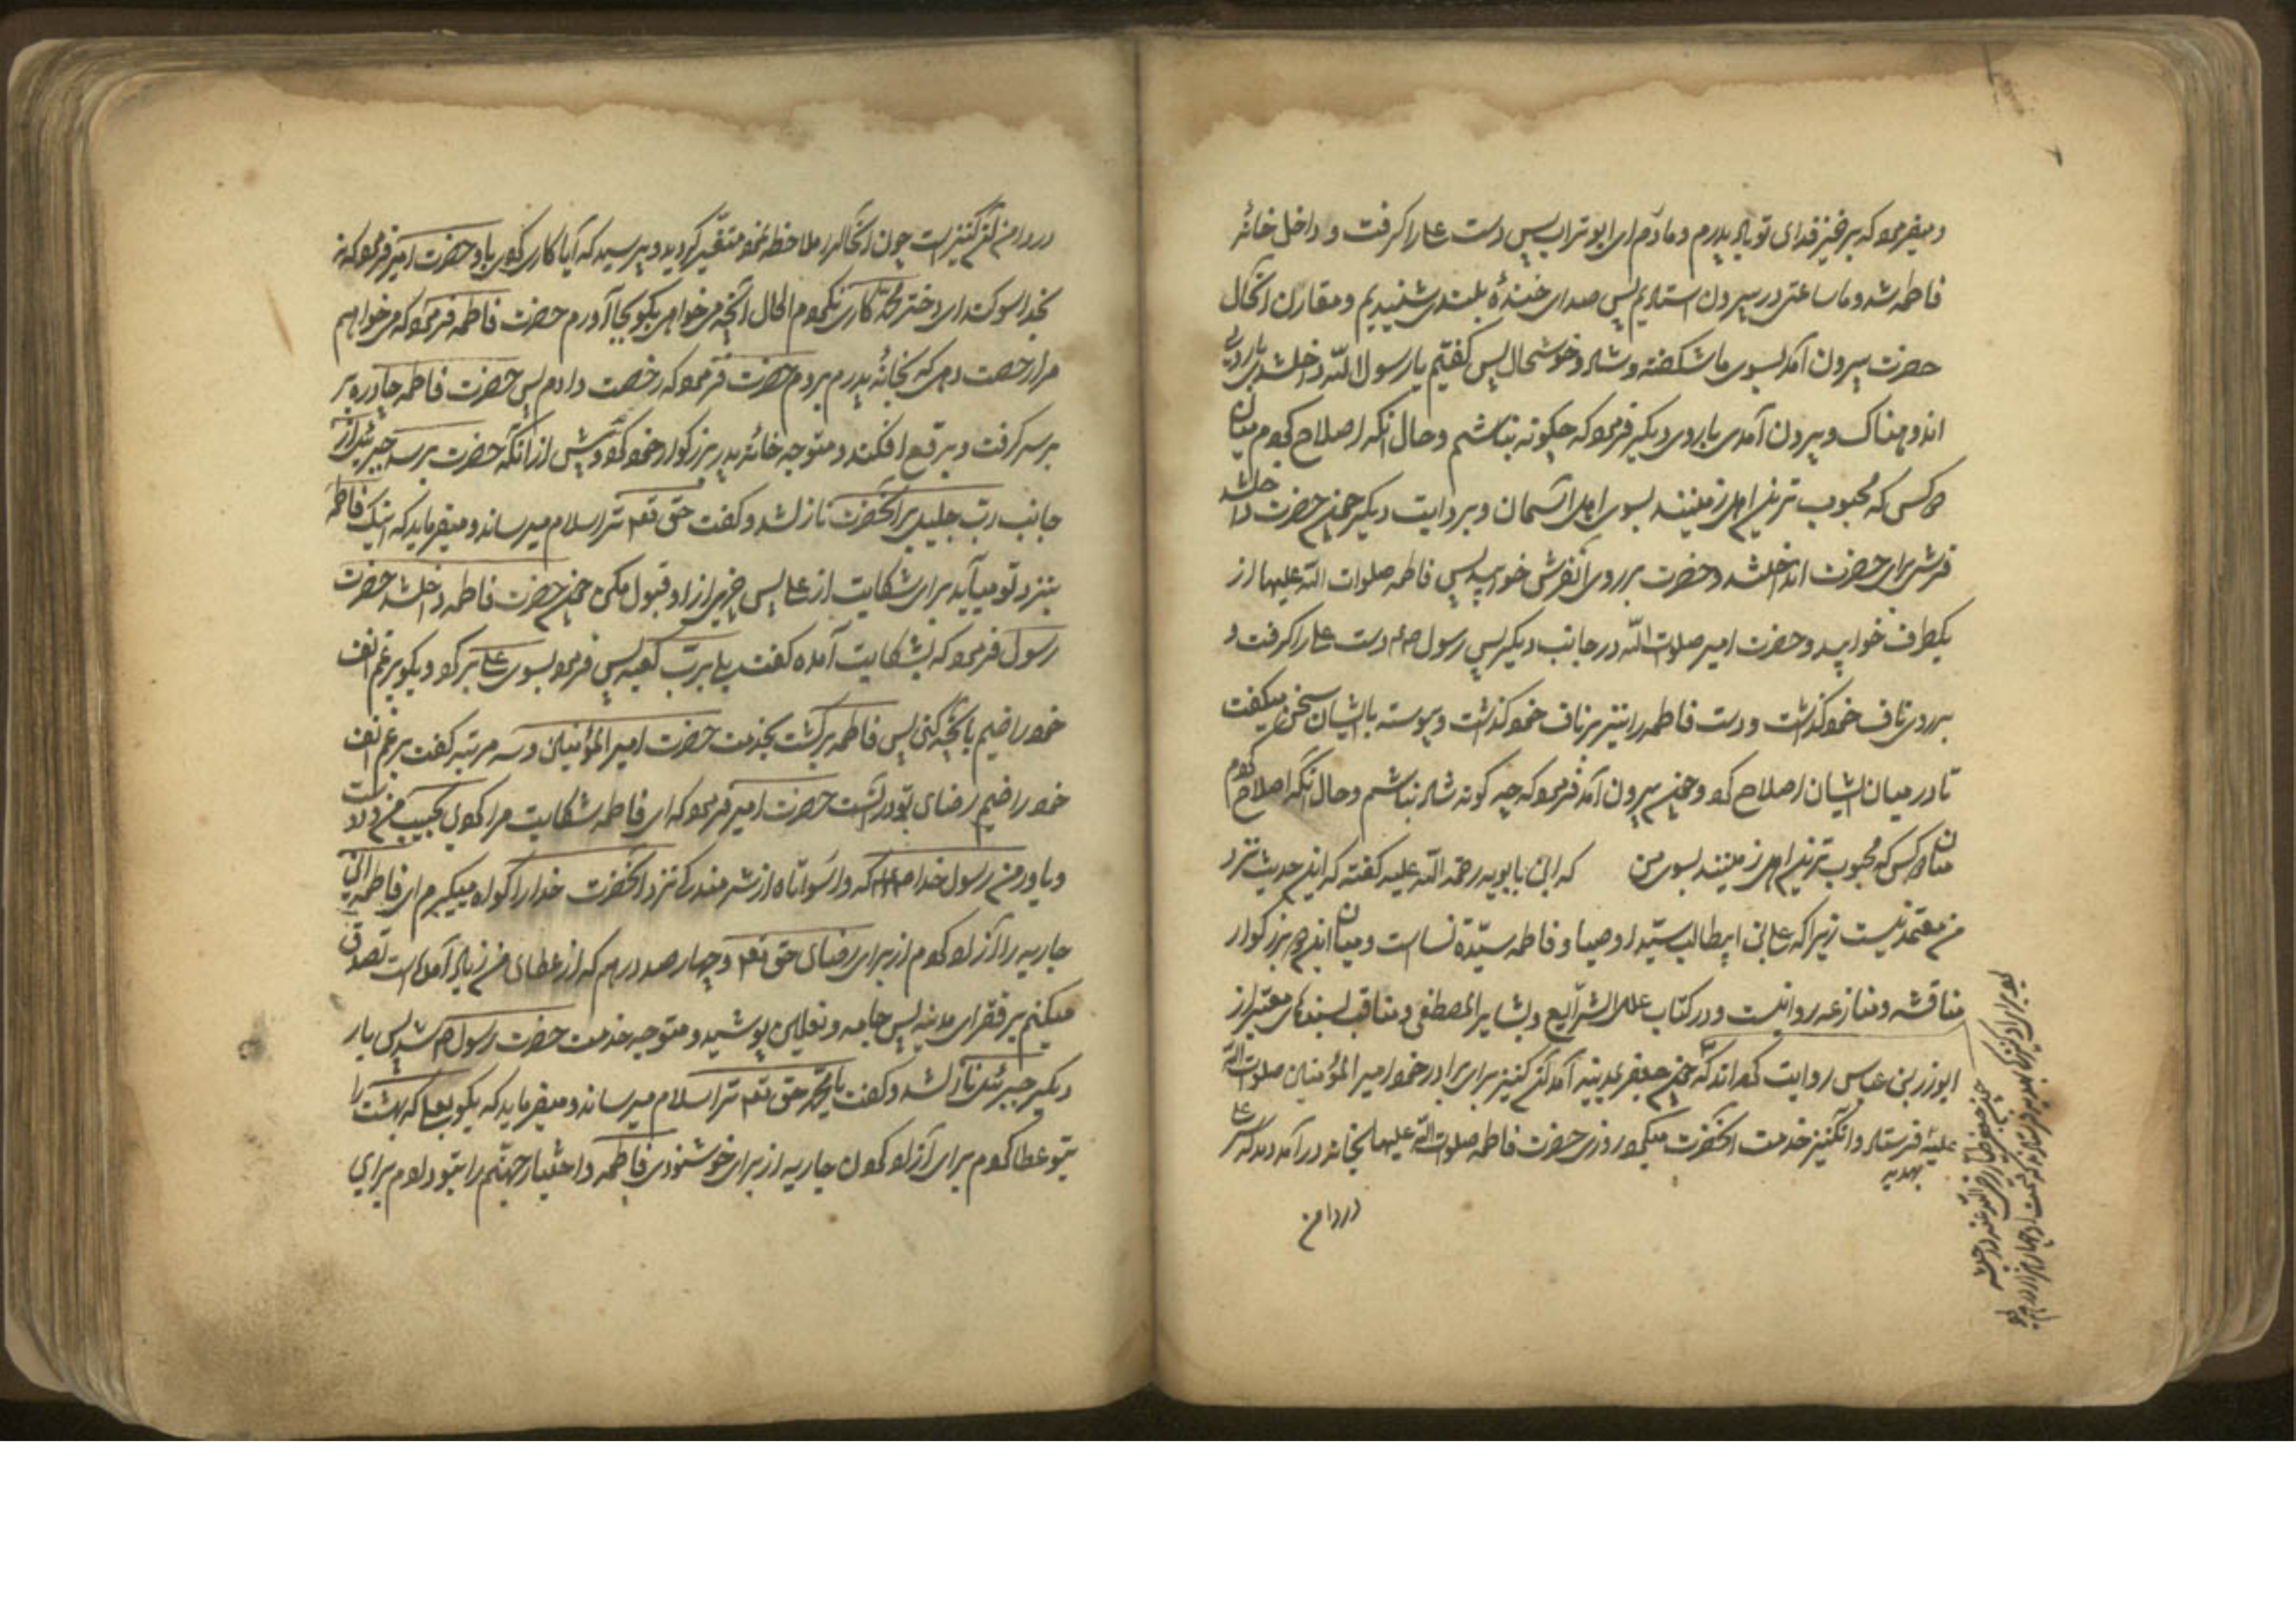 و میفرمود که برخیز فدای تو باد پدرم و مادرم ای ابوتراب پس دست علی را گرفت و داخل خانهٔ
فاطمه شد و ما ساعتی در بیرون استادیم پس صدای خندهٔ بلندی شنیدیم و مقارن آنحال
حضرت بیرون آمد بسوی ما شکفته و شاد و خوشحال پس گفتیم یا رسول الله داخل شدی با روی
اندوهناک و بیرون آمدی با روی دیگر فرمود که چگونه نباشم و حال آنکه اصلاح کردم میان
دو کس که محبوب ترین اهل زمینند بسوی اهل آسمان و بروایت دیگر چون حضرت داخل شد
فرش برای حضرت انداختند و حضرت بر روی آنفرش خوابید پس فاطمه صلوات الله علیها از
یکطرف خوابید و حضرت امیر صلوات الله در جانب دیگر پس رسول صم دست علی را گرفت و
بر روی ناف خود گذاشت و دست فاطمه را نیز بر ناف خود گذاشت و پیوسته با ایشان سخن میگفت
تا در میان ایشان اصلاح کرد و چون بیرون آمد فرمود که چه گونه شاد نباشم و حال آنکه اصلاح کردم
میان دو کس که محبوب ترین اهل زمینند بسوی من که ابن بابویه رحمه الله علیه گفته که این حدیث نزد
من معتمد نیست زیرا که علی بن ابیطالب سید اوصیا و فاطمه سیّدة نسا است و میان این دو بزرگوار
مناقشه و منازعه روا نیست و در کتاب علل الشرایع و بشایر المصطفی و مناقب بسندهای معتبر از
ابوذر و ابن عباس روایت کرده اند که چون جعفر بمدینه آمد آن کنیز برای برادر خود امیر المؤمنین صلوات الله
علیه بهدیه فرستاد و آنکنیز خدمت آنحضرت میکرد روزی حضرت فاطمه صلوات الله علیها بخانه در آمد دید که سر علی
در دامن
چون جعفر طیار رضی الله عنه در حبشه
بود برای او کنیزی بهدیه فرستادند که قیمت او چهار هزار درهم بود
در دامن آن کنیز است چون آنحال را ملاحظه نمود متغیّر گردید و پرسید که آیا کاری کردی با او حضرت امیر فرمود که نه
بخدا سوگند ای دختر محمّد کاری نکردم الحال آنچه میخواهی بگو بجا آورم حضرت فاطمه فرمود که میخواهم
مرا رخصت دهی که بخانهٔ پدرم بروم حضرت فرمود که رخصت دادم پس حضرت فاطمه چادر بر
سر گرفت و برقع افکند و متوجه خانهٔ پدر بزرگوار خود گردید و پیش از آنکه حضرت برسد جبرئیل از
جانب ربّ جلیل بر آنحضرت نازل شد و گفت حق تعم ترا سلام میرساند و میفرماید که اینک فاطمه
بنزد تو میآید برای شکایت از علی پس چیزی از او قبول مکن چون حضرت فاطمه داخل شد حضرت
رسول فرمود که بشکایت آمدهٔ گفت بلی بربّ کعبه پس فرمود بسوی علی برگرد و بگو برغم انف
خود راضیم بآنچه کنی پس فاطمه برگشت بخدمت حضرت امیر المؤمنین و سه مرتبه گفت برغم انف
خود راضیم رضای تو در آنست حضرت امیر فرمود که ای فاطمه شکایت مرا کردی بحبیب من و دوست
و یاور من رسول خدا صلعم که وا رسوائاه از شرمندگی نزد آنحضرت خدا را گواه میگیرم ای فاطمه که این
جاریه را آزاد کردم از برای رضای حق تعم و چهار صد درهم که از عطای من زیاد آمده است تصدق
میکنم بر فقرای مدینه پس جامه و نعلین پوشید و متوجه خدمت حضرت رسول صم شد پس بار
دیگر جبرئیل نازل شد و گفت یا محمّد حق تعم ترا سلام میرساند و میفرماید که بگو بعلی که بهشت را
بتو عطا کردم برای آزاد کردن جاریه از برای خوشنودی فاطمه و اختیار جهنّم را بتو دادم برای